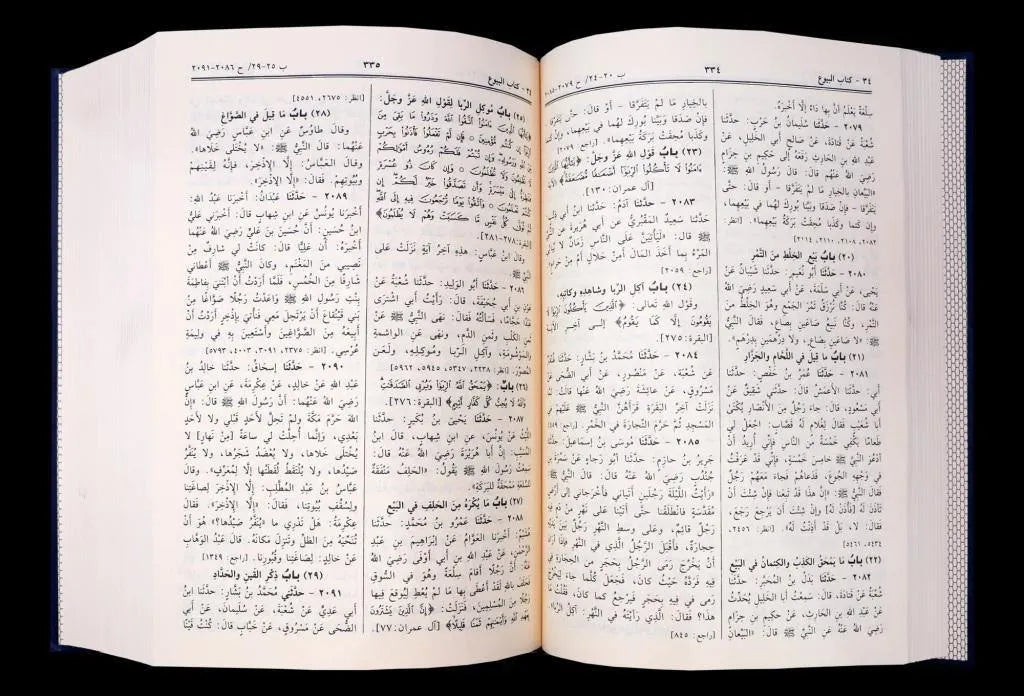 ٣٤ - كتاب البيوع
٣٣٤
ب ٢٠-٢٤/ ح ٢٠٧٩-٢٠٨٥
سِلْعَةً يَعْلَمُ أَنَّ بِهَا دَاءً إِلَّا أَخْبَرَهُ.
٢٠٧٩ - حَدَّثَنَا سُلَيْمَانُ بْنُ حَرْبٍ: حَدَّثَنَا
شُعْبَةُ عَنْ قَتَادَةَ، عَنْ صَالِحٍ أَبِي الْخَلِيلِ، عَنْ
عَبْدِ اللهِ بنِ الحَارِثِ رَفَعَهُ إِلَى حَكِيمِ بنِ حِزَامٍ
رَضِيَ اللهُ عَنْهُ قَالَ: قَالَ رَسُولُ اللهِ ﷺ:
«البَيِّعَانِ بالخِيَارِ مَا لَمْ يَتَفَرَّقَا - أَوْ قَالَ: حتَّى
يَتَفَرَّقَا - فإِنْ صَدَقَا وَبَيَّنَا بُورِكَ لهُمَا في بَيْعِهِما،
وإِن كتما وكذبا مُحِقَتْ بَرَكَةُ بَيْعِهِما». [انظر:
٢٠٨٢، ٢١٠٨، ٢١١٠، ٢١١٤]
(٢٠) بَابُ بَيْعِ الخِلْطِ مِنَ التَّمْرِ
٢٠٨٠ - حَدَّثَنَا أَبُو نُعَيْمٍ: حَدَّثَنَا شَيْبَانُ عَنْ
يَحْيى، عَنْ أَبي سَلَمَةَ، عَنْ أَبِي سَعِيدٍ رَضِيَ اللهُ
عَنْهُ قَالَ: كُنَّا نُرْزَقُ تَمْرَ الجَمْعِ وهُوَ الخِلْطُ مِنَ
التَّمْرِ، وكُنَّا نَبِيعُ صَاعَينِ بِصَاعٍ، فَقَالَ النَّبِيُّ
ﷺ: «لا صَاعَينِ بِصَاعٍ، ولا دِرْهَمَينِ بِدِرْهَمٍ».
(٢١) بَابُ مَا قِيلَ في اللَّحَّامِ والجَزَّارِ
٢٠٨١ - حَدَّثَنَا عُمَرُ بْنُ حَفْصٍ: حَدَّثَنَا
أَبِي: حَدَّثَنَا الأَعْمَشُ قَالَ: حَدَّثَني شَقِيقٌ عَنْ
أَبي مَسْعُودٍ، قَالَ: جَاءَ رَجُلٌ مِنَ الأَنْصَارِ يُكْنَى
أَبَا شُعَيْبٍ فَقَالَ لِغُلَامٍ لَهُ قَصَّابٍ: اجْعَلْ لِي
طَعَامًا يَكْفِي خَمْسَةً مِنَ النَّاسِ فَإِنِّي أُرِيدُ أَنْ
أَدْعُوَ النَّبِيَّ ﷺ خَامِسَ خَمْسَةٍ، فَإِنِّي قَدْ عَرَفْتُ
فِي وَجْهِهِ الجُوعَ، فَدَعَاهُمْ فَجَاءَ مَعَهُمْ رَجُلٌ
فَقَالَ النَّبِيُّ ﷺ: «إِنَّ هذَا قَدْ تَبِعَنَا فَإِنْ شِئْتَ أَنْ
تَأْذَنَ لَهُ [فَأْذَنْ لَهُ] وَإِنْ شِئْتَ أَنْ يَرْجِعَ رَجَعَ،
فَقَالَ: لا، بَلْ قَدْ أَذِنْتُ لَهُ». [انظر: ٢٤٥٦،
٥٤٣٤، ٥٤٦١]
(٢٢) بَابُ مَا يَمْحَقُ الكَذِبُ والكِتْمانُ في البَيْعِ
٢٠٨٢ - حَدَّثَنَا بَدَلُ بْنُ المُحَبَّرِ: حَدَّثَنَا
شُعْبَةُ عَنْ قَتَادَةَ، قَالَ: سَمِعْتُ أَبَا الخَلِيلِ يُحَدِّثُ
عَنْ عَبْدِ اللهِ بنِ الحَارِثِ، عَنْ حَكِيمِ بنِ حِزَامٍ
رَضِيَ اللهُ عَنْهُ عَنِ النَّبِيِّ ﷺ قَالَ: «البَيِّعَانِ
بالخِيَارِ مَا لَمْ يَتَفَرَّقَا - أَوْ قَالَ: حتَّى
فإِنْ صَدَقَا وَبَيَّنَا بُورِكَ لهُمَا في بَيْعِهِما، وإِن
وكذبا مُحِقَتْ بَرَكَةُ بَيْعِهِما». [راجع: ٢٠٧٩]
(٢٣) بَابُ قَوْلِ اللهِ عَزَّ وَجَلَّ: ﴿يَا أَيُّهَا الَّذِينَ
آمَنُوا لَا تَأْكُلُوا الرِّبَا أَضْعَافًا مُضَاعَفَةً﴾
[آل عمران: ١٣٠]
٢٠٨٣ - حَدَّثَنَا آدَمُ: حَدَّثَنَا ابْنُ أَبي ذِئْبٍ:
حَدَّثَنَا سَعِيدٌ المَقْبُرِيُّ عَنْ أَبي هُرَيْرَةَ عَنِ النَّبِيِّ
ﷺ قَالَ: «لَيَأْتِيَنَّ عَلَى النَّاسِ زَمَانٌ لا يُبَالِي
المَرْءُ بِمَا أَخَذَ المَالَ أَمِنْ حَلَالٍ أَمْ مِنْ حَرَامٍ».
[راجع: ٢٠٥٩]
(٢٤) بَابُ آكِلِ الرِّبا وشاهِدِهِ وكاتِبِهِ،
وقَوْلِ اللهِ تَعَالى: ﴿الَّذِينَ يَأْكُلُونَ الرِّبَا لَا
يَقُومُونَ إِلَّا كَمَا يَقُومُ﴾ إلى آخِرِ الآيَةِ
[البقرة: ٢٧٥].
٢٠٨٤ - حَدَّثَنَا مُحَمَّدُ بْنُ بَشَّارٍ: حَدَّثَنَا غُنْدَرٌ
عَنْ شُعْبَةَ، عَنْ مَنْصُورٍ، عَنْ أَبي الضُّحَى عَنْ
مَسْرُوقٍ، عَنْ عَائِشَةَ رَضِيَ اللهُ عَنْهَا قَالَتْ: لَمَّا
نَزَلَتْ آخِرُ البَقَرَةِ قَرَأَهُنَّ النَّبِيُّ ﷺ عَلَيْهِمْ فِي
المَسْجِدِ ثُمَّ حَرَّمَ التِّجَارَةَ فِي الخَمْرِ. [راجع: ٤٥٩]
٢٠٨٥ - حَدَّثَنَا مُوسَى بْنُ إِسماعيلَ: حَدَّثَنَا
جَرِيرُ بنُ حازِمٍ: حَدَّثَنَا أَبُو رَجَاءٍ عَنْ سَمُرَةَ بْنِ
جُنْدُبٍ رَضِيَ اللهُ عَنْهُ قَالَ: قَالَ النَّبِيُّ ﷺ:
«رَأَيْتُ اللَّيْلَةَ رَجُلَيْنِ أَتَيَانِي فأَخْرَجَانِي إِلى أَرْضٍ
مُقَدَّسَةٍ فَانْطَلَقْنَا حتَّى أَتَيْنَا عَلى نَهَرٍ مِنْ دَمٍ فِيهِ
رَجُلٌ قَائِمٌ، وعَلى وسطِ النَّهْرِ رَجُلٌ بَيْنَ يَدَيْهِ
حِجارَةٌ، فأَقْبَلَ الرَّجُلُ الَّذِي في النَّهَرِ فإِذَا أَرَادَ
أَنْ يَخْرُجَ رَمَى الرَّجُلُ بِحَجَرٍ مِن الحِجَارَةِ في
فِيهِ فَرَدَّهُ حَيْثُ كانَ، فَجَعَلَ كُلَّمَا جاءَ لِيَخْرُجَ
رَمى في فِيهِ بِحَجَرٍ فَيَرْجِعُ كما كانَ، فَقُلْتُ: مَا
هذَا؟ فقَالَ: الَّذِي رَأَيْتَهُ في النَّهَرِ: آكِلُ الرِّبَا».
[راجع: ٨٤٥]
٣٤ - كتاب البيوع
٣٣٥
ب ٢٥-٢٩/ ح ٢٠٨٦-٢٠٩١
(٢٥) بَابُ مُوكِلِ الرِّبا لِقَوْلِ اللهِ عَزَّ وَجَلَّ:
﴿يَا أَيُّهَا الَّذِينَ آمَنُوا اتَّقُوا اللَّهَ وَذَرُوا مَا بَقِيَ مِنَ
الرِّبَا إِن كُنتُم مُّؤْمِنِينَ ۝ فَإِن لَّمْ تَفْعَلُوا فَأْذَنُوا بِحَرْبٍ
مِّنَ اللَّهِ وَرَسُولِهِ وَإِن تُبْتُمْ فَلَكُمْ رُءُوسُ أَمْوَالِكُمْ
لَا تَظْلِمُونَ وَلَا تُظْلَمُونَ ۝ وَإِن كَانَ ذُو عُسْرَةٍ
فَنَظِرَةٌ إِلَى مَيْسَرَةٍ وَأَن تَصَدَّقُوا خَيْرٌ لَّكُمْ إِن
كُنتُمْ تَعْلَمُونَ ۝ وَاتَّقُوا يَوْمًا تُرْجَعُونَ فِيهِ إِلَى اللَّهِ
ثُمَّ تُوَفَّى كُلُّ نَفْسٍ مَّا كَسَبَتْ وَهُمْ لَا يُظْلَمُونَ﴾
[البقرة: ٢٧٨-٢٨١].
وقَالَ ابنُ عَبَّاسٍ: هذِهِ آخِرُ آيَةٍ نَزَلَتْ عَلى
النَّبِيِّ ﷺ.
٢٠٨٦ - حَدَّثَنَا أَبُو الوَلِيدِ: حَدَّثَنَا شُعْبَةُ عَنْ
عَوْنِ بنِ أَبي جُحَيْفَةَ، قَالَ: رَأَيْتُ أَبي اشْتَرَى
عَبْدًا حَجَّامًا، فَسَأَلْتُهُ فَقَالَ: نَهَى النَّبِيُّ ﷺ عَنْ
ثَمَنِ الكَلْبِ وثَمَنِ الدَّمِ، ونَهَى عَنِ الواشِمَةِ
والمَوْشُومَةِ، وآكِلِ الرِّبا ومُوكِلِهِ، ولَعَنَ
المُصَوِّرَ. [انظر: ٢٢٣٨، ٥٣٤٧، ٥٩٤٥، ٥٩٦٢]
(٢٦) بَابُ: ﴿يَمْحَقُ اللَّهُ الرِّبَا وَيُرْبِي الصَّدَقَاتِ
وَاللَّهُ لَا يُحِبُّ كُلَّ كَفَّارٍ أَثِيمٍ﴾ [البقرة: ٢٧٦].
٢٠٨٧ - حَدَّثَنَا يَحْيَى بْنُ بُكَيْرٍ: حَدَّثَنَا
اللَّيْثُ عَنْ يُونُسَ، عَنِ ابْنِ شِهَابٍ، قَالَ ابنُ
المُسَيَّبِ: إِنَّ أَبا هُرَيْرَةَ رَضِيَ اللهُ عَنْهُ قَالَ:
سَمِعْتُ رَسُولَ اللهِ ﷺ يَقُولُ: «الحَلِفُ مَنْفَقَةٌ
لِلسِّلْعَةِ مَمْحَقَةٌ لِلبَرَكَةِ».
(٢٧) بَابُ مَا يُكْرَهُ مِنَ الحَلِفِ في البَيْعِ
٢٠٨٨ - حَدَّثَنَا عَمْرُو بْنُ مُحَمَّدٍ: حَدَّثَنَا
هُشَيْمٌ: أَخْبَرَنَا العَوَّامُ عَنْ إِبْرَاهِيمَ بنِ عَبْدِ
الرَّحْمنِ، عَنْ عَبْدِ اللهِ بْنِ أَبي أَوْفَى رَضِيَ اللهُ
عَنْهُ: أَنَّ رَجُلًا أَقَامَ سِلْعَةً وهُوَ في السُّوقِ
فَحَلَفَ باللهِ لَقَدْ أَعْطَى بِهَا مَا لَمْ يُعْطَ لِيُوقِعَ فِيها
رَجُلًا مِنَ المُسْلِمِينَ، فَنَزَلَتْ: ﴿إِنَّ الَّذِينَ يَشْتَرُونَ
بِعَهْدِ اللَّهِ وَأَيْمَانِهِمْ ثَمَنًا قَلِيلًا﴾ [آل عمران: ٧٧].
[انظر: ٢٦٧٥، ٤٥٥١]
(٢٨) بَابُ مَا قِيلَ في الصَّوَّاغِ
وقَالَ طاوُسٌ عَنِ ابنِ عَبَّاسٍ رَضِيَ اللهُ
عَنْهُمَا: قَالَ النَّبِيُّ ﷺ: «لا يُخْتَلى خَلاها».
وقَالَ العَبَّاسُ: إِلَّا الإِذْخِرَ، فَإِنَّهُ لِقَيْنِهِمْ
وبُيُوتِهِمْ. فَقَالَ: «إِلَّا الإِذْخِرَ».
٢٠٨٩ - حَدَّثَنَا عَبْدَانُ: أَخْبَرَنَا عَبْدُ اللهِ:
أَخْبَرَنَا يُونُسُ عَنِ ابنِ شِهَابٍ قَالَ: أَخْبَرَني عَلِيُّ
ابنُ حُسَينٍ: أَنَّ حُسَيْنَ بنَ عَلِيٍّ رَضِيَ اللهُ عَنْهُمَا
أَخْبَرَهُ: أَنَّ عَلِيًّا قَالَ: كانَتْ لي شارِفٌ مِنْ
نَصِيبي مِنَ المَغْنَمِ، وكانَ النَّبِيُّ ﷺ أَعْطَاني
شارِفًا مِنَ الخُمْسِ، فَلَمَّا أَرَدْتُ أَنْ أَبْتَنِيَ بِفاطِمَةَ
بِنْتِ رَسُولِ اللهِ ﷺ وَاعَدْتُ رَجُلًا صَوَّاغًا مِنْ
بَنِي قَيْنُقاعَ أَنْ يَرْتَحِلَ مَعِي فنأتِيَ بإِذْخِرٍ أَرَدْتُ أَنْ
أَبِيعَهُ مِنَ الصَّوَّاغِينَ وأَسْتَعِينَ بِهِ في وَلِيمَةِ
عُرُسِي. [انظر: ٢٣٧٥، ٣٠٩١، ٤٠٠٣، ٥٧٩٣]
٢٠٩٠ - حَدَّثَنَا إِسحَاقُ: حَدَّثَنَا خالِدُ بنُ
عَبْدِ اللهِ عَنْ خالِدٍ، عَنْ عِكْرِمَةَ، عَنِ ابنِ عَبَّاسٍ
رَضِيَ اللهُ عَنْهُمَا: أَنَّ رَسُولَ اللهِ ﷺ قَالَ: «إِنَّ
اللهَ حَرَّمَ مَكَّةَ ولَمْ تَحِلَّ لأَحَدٍ قَبْلي ولا لأَحَدٍ
بَعْدِي، وَإِنَّما أُحِلَّتْ لي ساعَةً [مِنْ نَهارٍ] لا
يُخْتَلى خَلاها، ولا يُعْضَدُ شَجَرُها، ولا يُنَفَّرُ
صَيْدُها، ولا يُلْتَقَطُ لُقَطَتُها إِلَّا لِمُعَرِّفٍ». وقَالَ
عَبَّاسُ بنُ عَبْدِ المُطَّلِبِ: إِلَّا الإِذْخِرَ لِصاغَتِنا
ولِسُقُفِ بُيُوتِنا، فَقَالَ: «إِلَّا الإِذْخِرَ». فقَالَ
عِكْرِمَةُ: هَلْ تَدْرِي مَا «يُنَفَّرُ صَيْدُها»؟ هُوَ أَنْ
تُنَحِّيَهُ مِنَ الظِّلِّ وتَنْزِلَ مَكانَهُ. قَالَ عَبْدُ الوَهَّابِ
عَنْ خَالِدٍ: لِصَاغَتِنا وقُبُورِنَا. [راجع: ١٣٤٩]
(٢٩) بَابُ ذِكْرِ القَينِ والحَدَّادِ
٢٠٩١ - حَدَّثَنِي مُحَمَّدُ بْنُ بَشَّارٍ: حَدَّثَنَا ابنُ
أَبي عَدِيٍّ عَنْ شُعْبَةَ، عَنْ سُلَيْمَانَ، عَنْ أَبي
الضُّحَى عَنْ مَسْرُوقٍ، عَنْ خَبَّابٍ قَالَ: كُنْتُ قَيْنًا